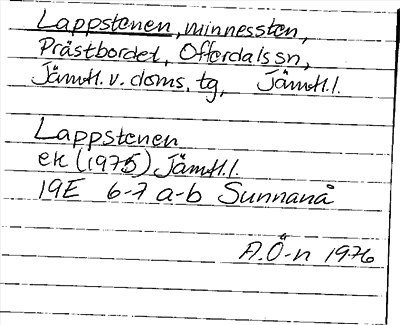 Lappstenen, minnessten,
Prästbordet, Offerdals sn,
Jämtl. v. doms. tg, Jämtl. l.
Lappstenen
ek (1975) Jämtl. l.
19E 6-7 a-b Sunnanå
A.Ö-n 1976